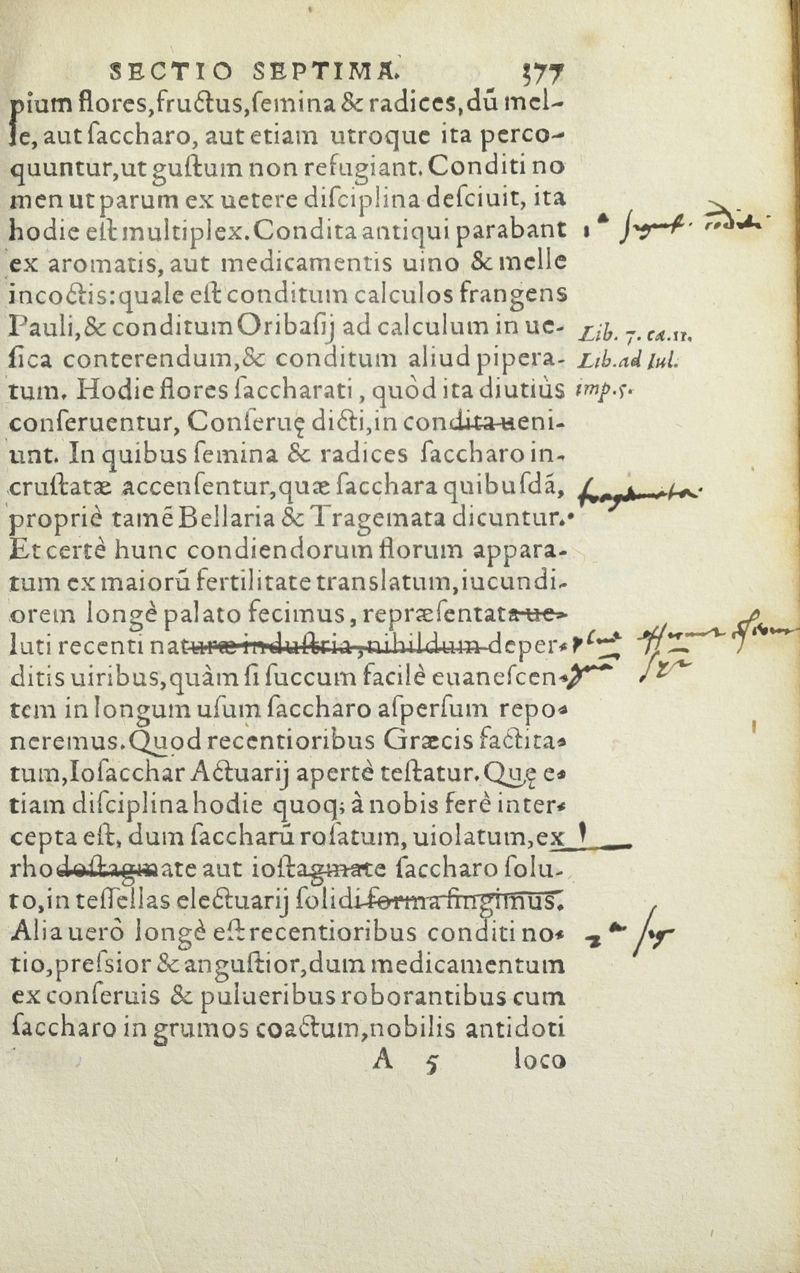 SECTIO SEPTIMA. 377
pium flores,fructus,ſemina & radices,dū mel-
le, aut ſaccharo, aut etiam utroque ita perco-
quuntur,ut guſtum non refugiant. Conditi no
men ut parum ex uetere diſciplina deſciuit, ita
hodie eſt multiplex. Condita antiqui parabant
ex aromatis, aut medicamentis uino & melle
incoctis: quale eſt conditum calculos frangens
Pauli,& conditum Oribaſij ad calculum in ue-
Lib. 7. ca.11.
ſica conterendum,& conditum aliud pipera-
Lib.ad Iul.
tum. Hodie flores ſaccharati, quòd ita diutiùs
imp.5.
conſeruentur, Conſeruę dicti,in condita ueni-
unt. In quibus ſemina & radices ſaccharo in-
cruſtatæ accenſentur,quæ ſacchara quibuſdā,
propriè tamē Bellaria & Tragemata dicuntur.
Et certè hunc condiendorum florum appara-
tum ex maiorū fertilitate translatum,iucundi-
orem longè palato fecimus, repræſentata ue-
luti recenti naturæ induſtria, nihildum deper-
ditis uiribus,quàm ſi ſuccum facilè euaneſcen-
tem in longum uſum ſaccharo aſperſum repo-
neremus. Quod recentioribus Græcis factita-
tum,Ioſacchar Actuarij apertè teſtatur. Quę e-
tiam diſciplina hodie quoq; à nobis ferè inter-
cepta eſt, dum ſaccharū roſatum, uiolatum,ex
rhodoſtagmate aut ioſtagmate ſaccharo ſolu-
to,in teſſellas electuarij ſolidi forma fingimus.
Alia uerò longè eſt recentioribus conditi no-
tio,preſsior & anguſtior,dum medicamentum
ex conſeruis & pulueribus roborantibus cum
ſaccharo in grumos coactum,nobilis antidoti
A 5 loco